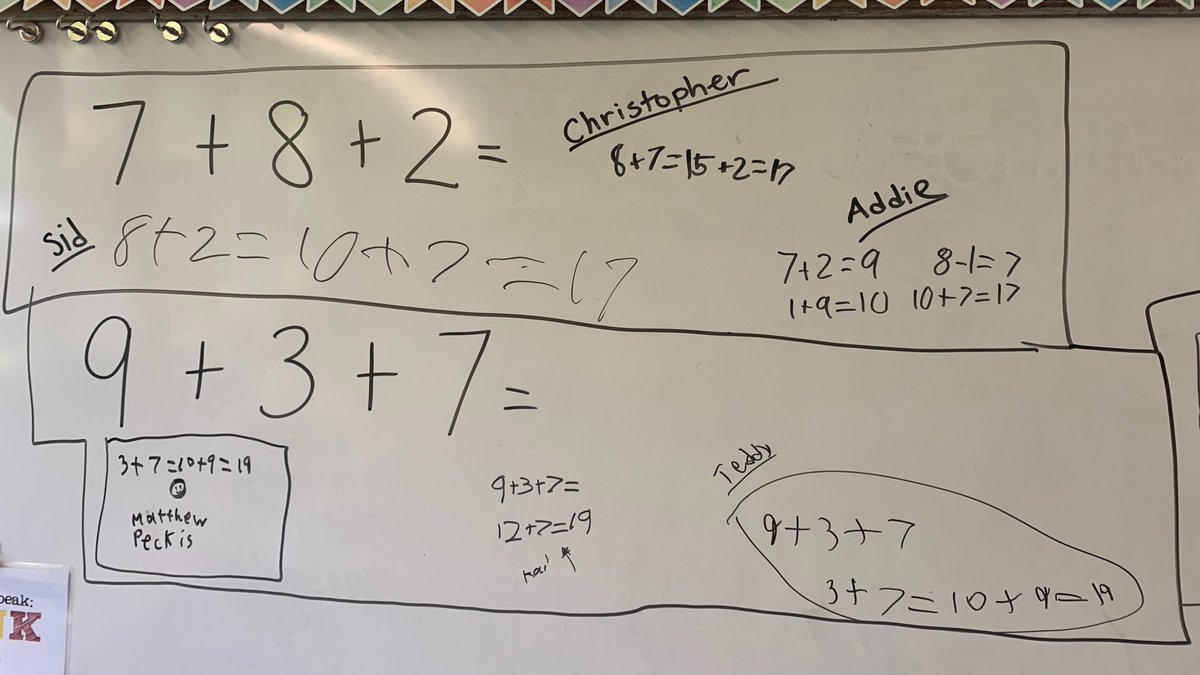 7 + 8 + 2 =
Christopher
8+7=15+2=17
Sid
8+2=10+7=17
Addie
7+2=9 8-1=7
1+9=10 10+7=17
9 + 3 + 7 =
3+7=10+9=19
Matthew
Peckis
9+3+7=
12+7=19
Kai
Teddy
9+3+7
3+7=10+9=19
peak:
K